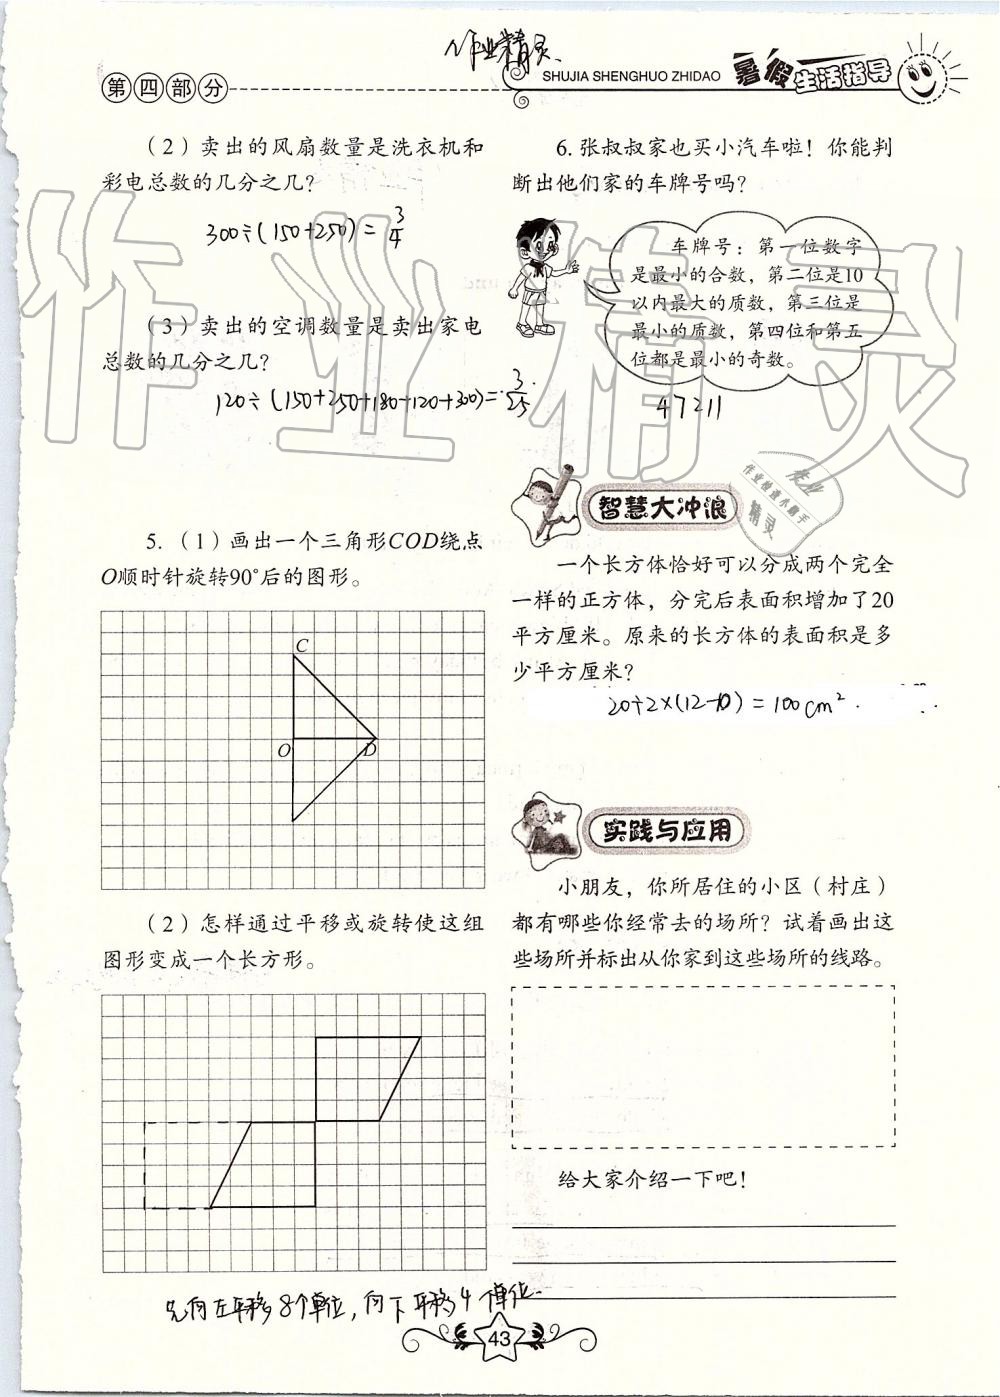 作业精灵
第四部分
SHUJIA SHENGHUO ZHIDAO
暑假生活指导
（2）卖出的风扇数量是洗衣机和
彩电总数的几分之几？
300÷(150+250)=3/4
（3）卖出的空调数量是卖出家电
总数的几分之几？
120÷(150+250+180+120+300)=3/25
5.（1）画出一个三角形COD绕点
O顺时针旋转90°后的图形。
C
O
D
（2）怎样通过平移或旋转使这组
图形变成一个长方形。
先向左平移8个单位，向下平移4个单位.
6.张叔叔家也买小汽车啦！你能判
断出他们家的车牌号吗？
车牌号：第一位数字
是最小的合数，第二位是10
以内最大的质数，第三位是
最小的质数，第四位和第五
位都是最小的奇数。
47211
智慧大冲浪
一个长方体恰好可以分成两个完全
一样的正方体，分完后表面积增加了20
平方厘米。原来的长方体的表面积是多
少平方厘米？
20÷2×(12-2)=100cm²
实践与应用
小朋友，你所居住的小区（村庄）
都有哪些你经常去的场所？试着画出这
些场所并标出从你家到这些场所的线路。
给大家介绍一下吧！
43
作业精灵